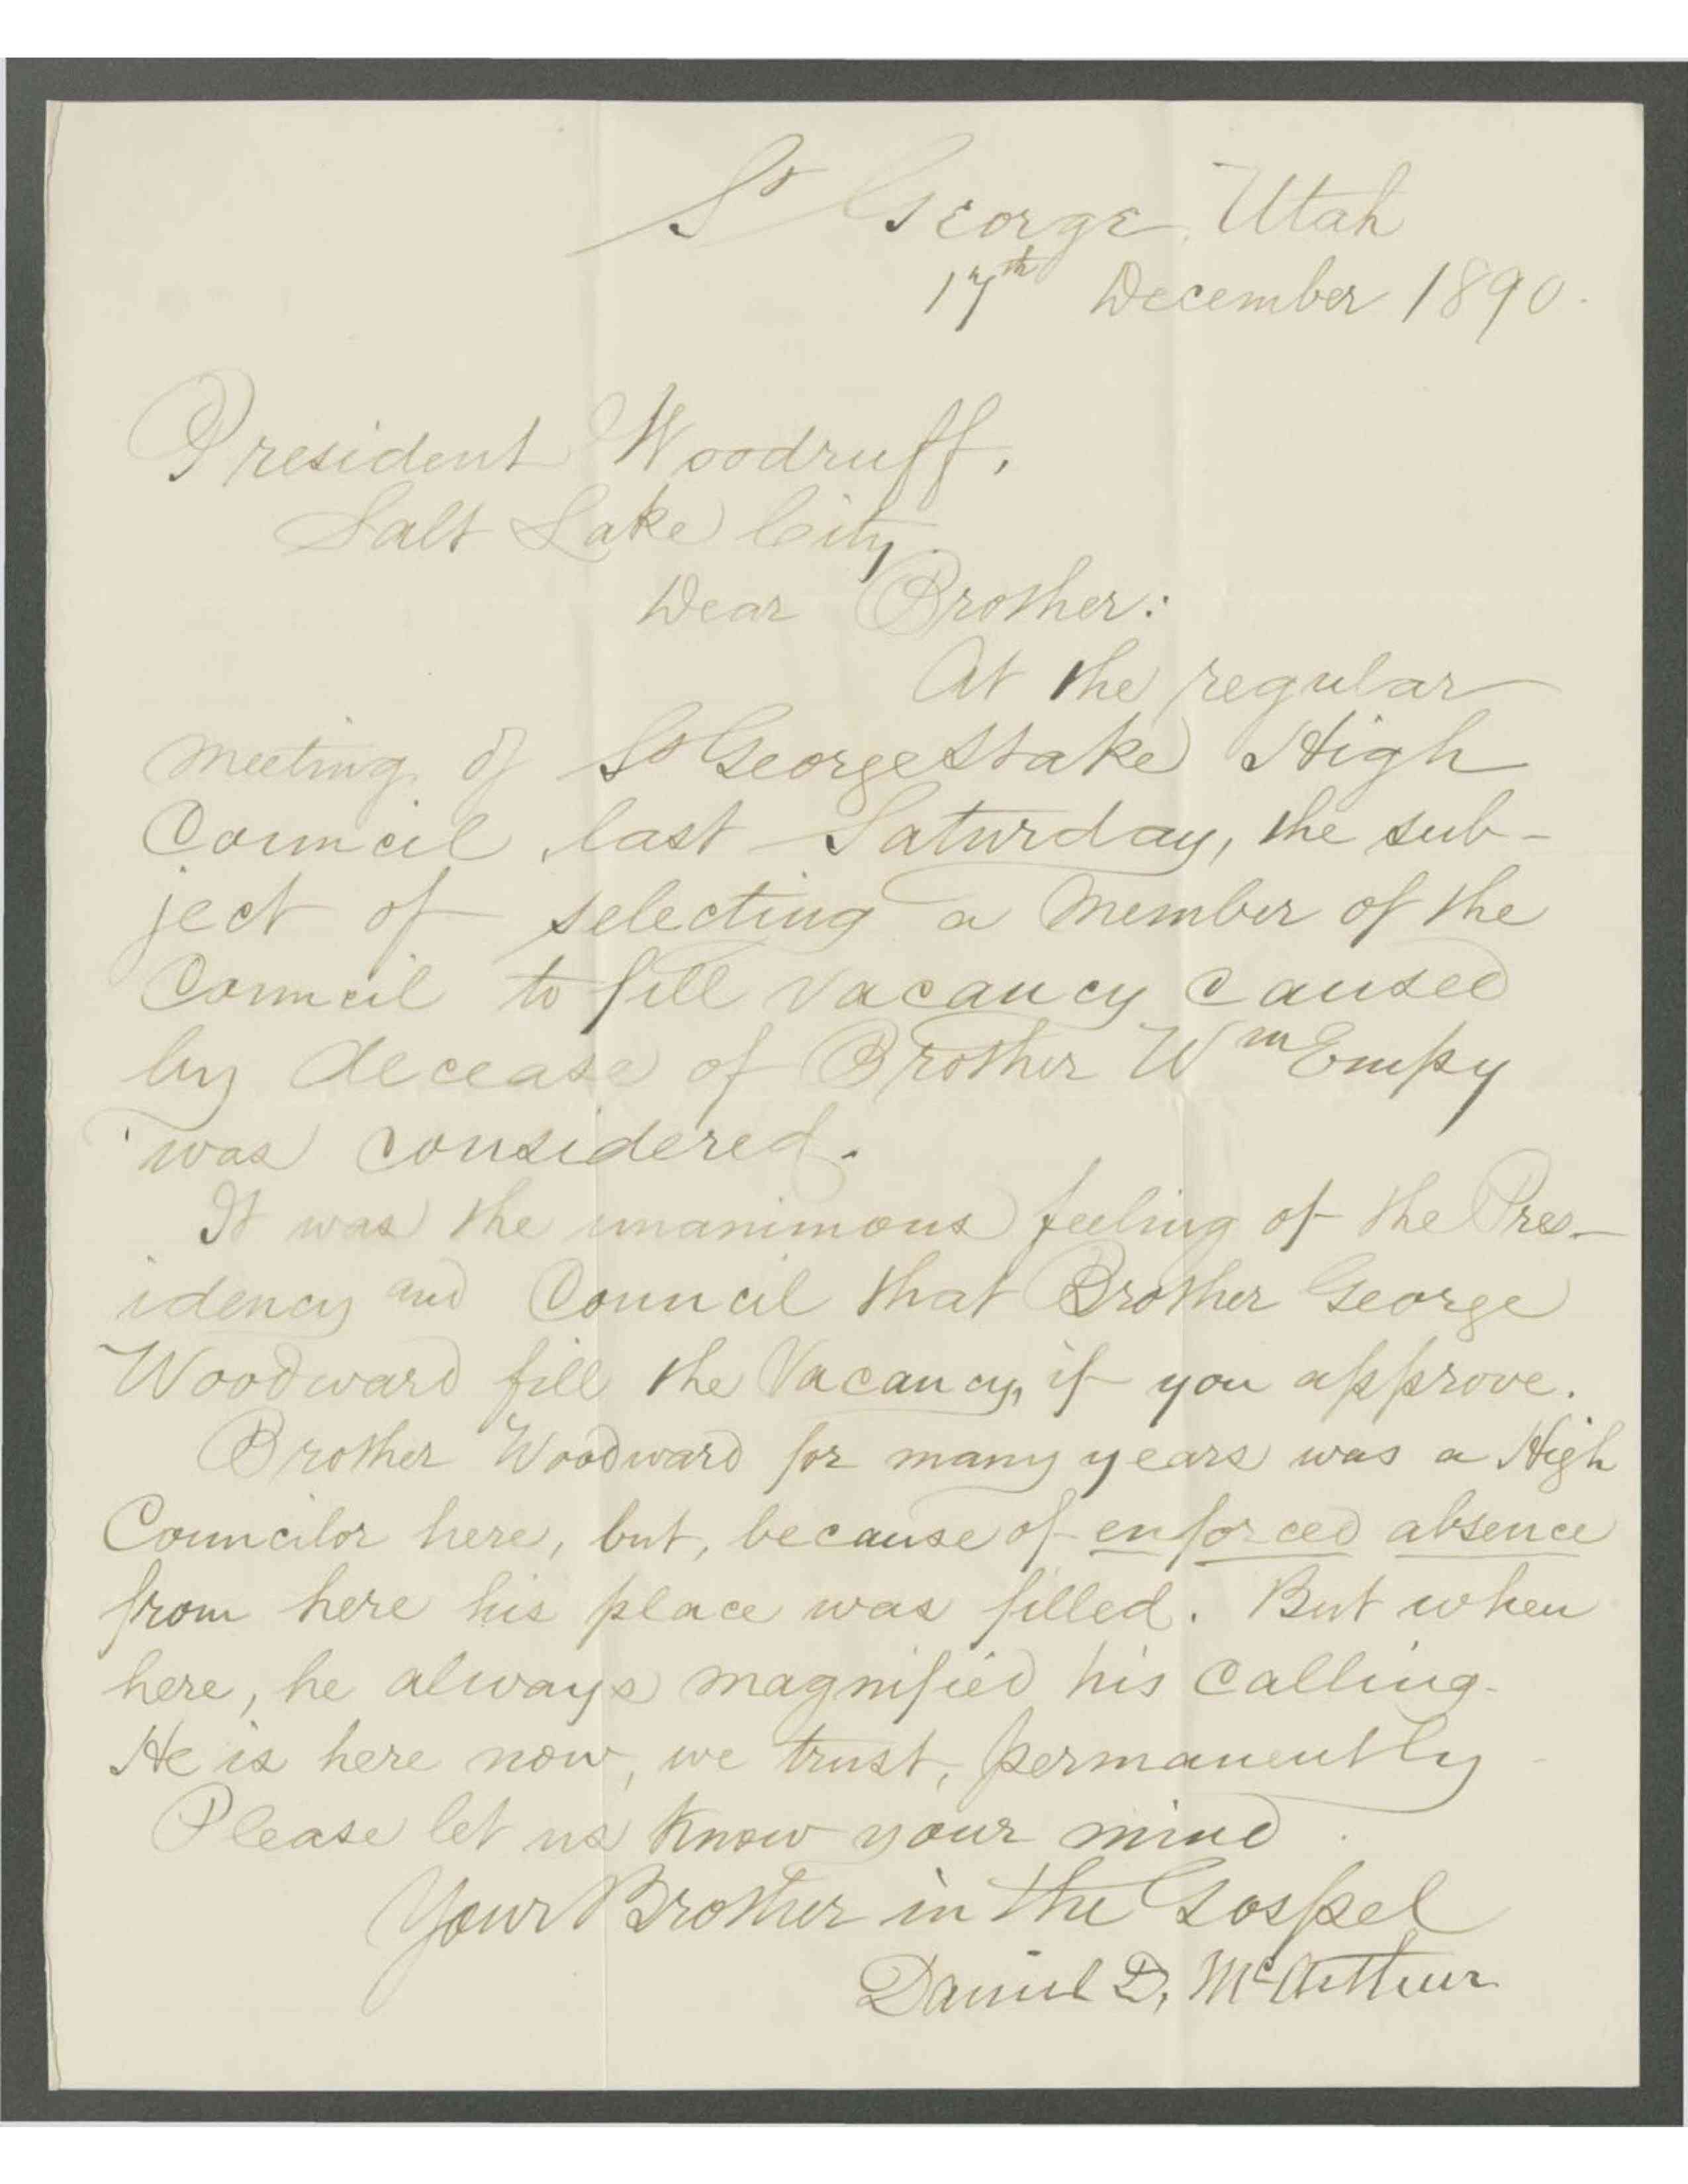 St George, Utah
17th December 1890.
President Woodruff,
Salt Lake City.
Dear Brother:
At the regular
meeting of St George Stake High
Council, last Saturday, the sub-
ject of selecting a member of the
Council to fill vacancy caused
by decease of Brother Wm Empy
was considered.
It was the unanimous feeling of the Pres-
idency and Council that Brother George
Woodward fill the Vacancy, if you approve.
Brother Woodward for many years was a High
Councilor here, but, because of enforced absence
from here his place was filled. But when
here, he always magnified his calling.
He is here now, we trust, permanently.
Please let us know your mind.
Your Brother in the Gospel
Daniel D. McArthur